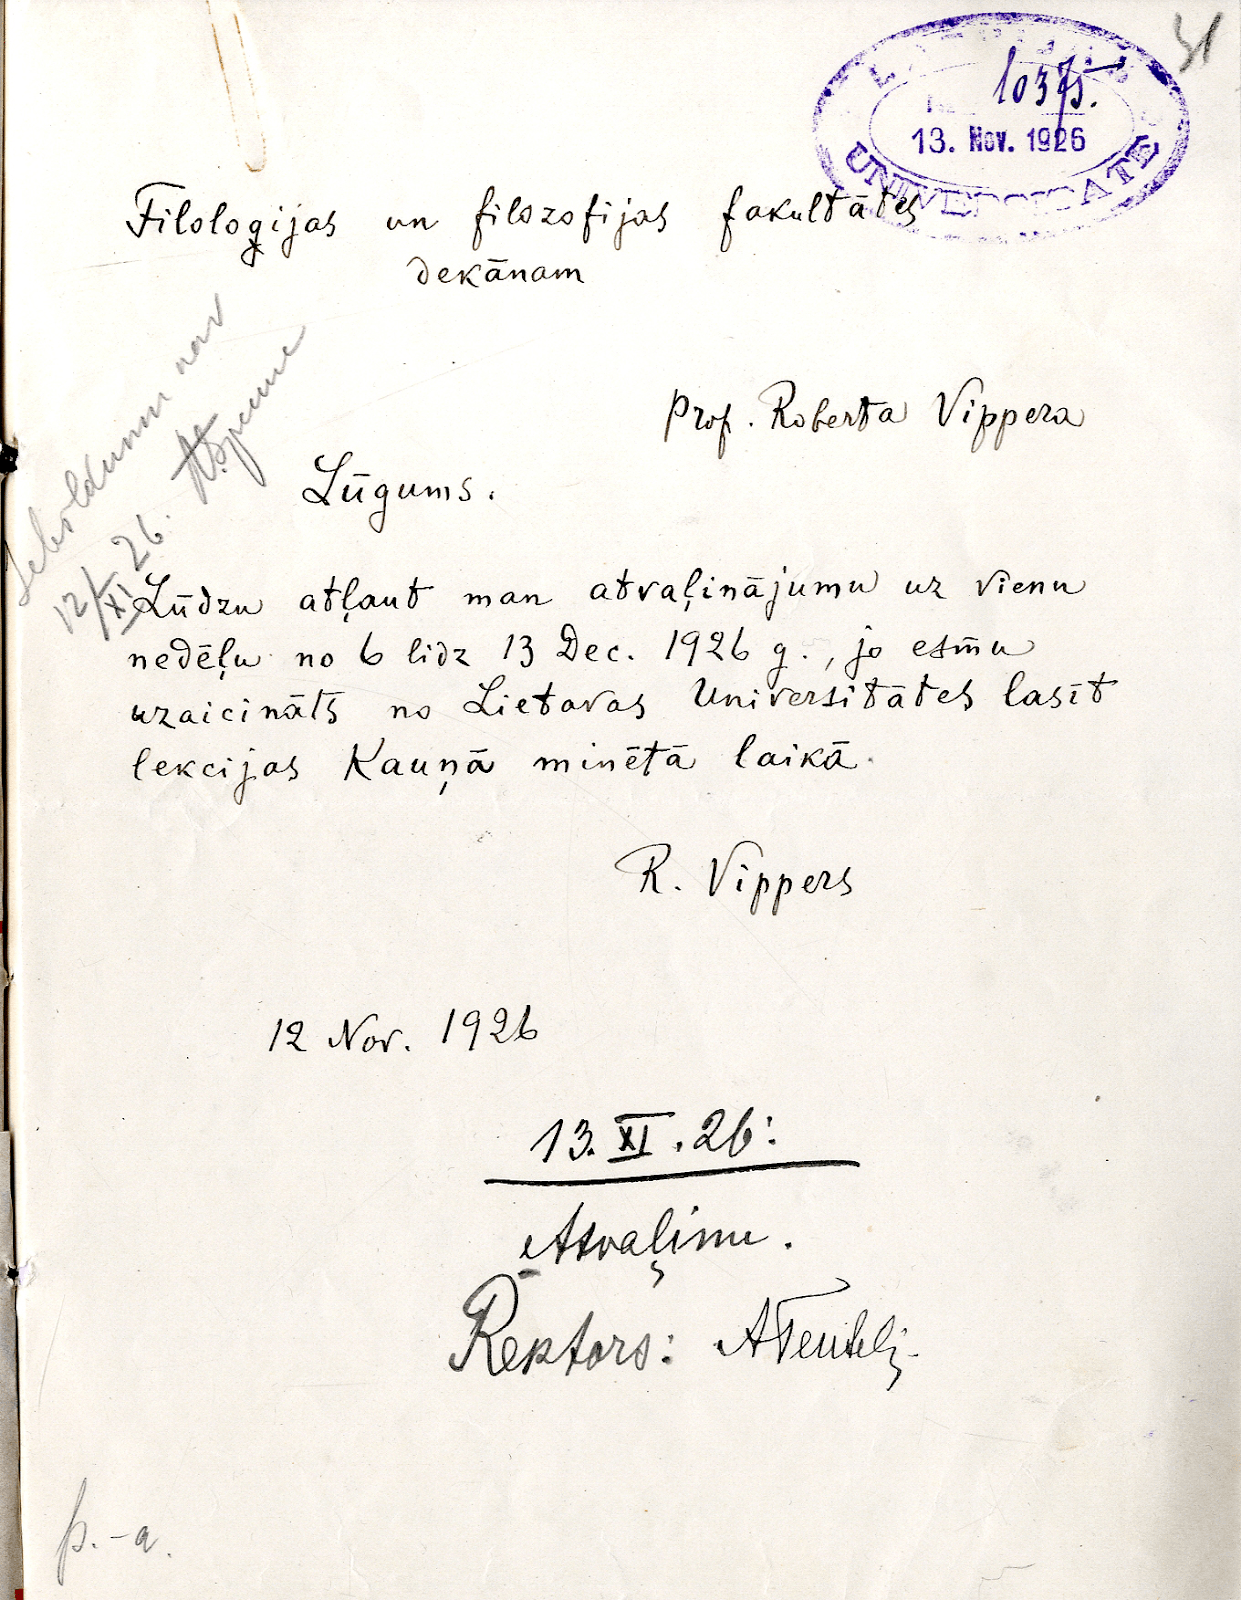 31
LATVIJAS
10375.
13. Nov. 1926
UNIVERSITATE
Filoloģijas un filozofijas fakultātes
dekānam
Prof. Roberta Vippera
Lūgums.
Iebildumu nav
12/XI 26.
Lūdzu atļaut man atvaļinājumu uz vienu
nedēļu no 6 lidz 13 Dec. 1926 g., jo esmu
uzaicināts no Lietavas Universitātes lasīt
lekcijas Kauņā minētā laikā.
R. Vippers
12 Nov. 1926
13. XI. 26:
Atvaļinu.
Rektors: ATentelj-
p.-a.